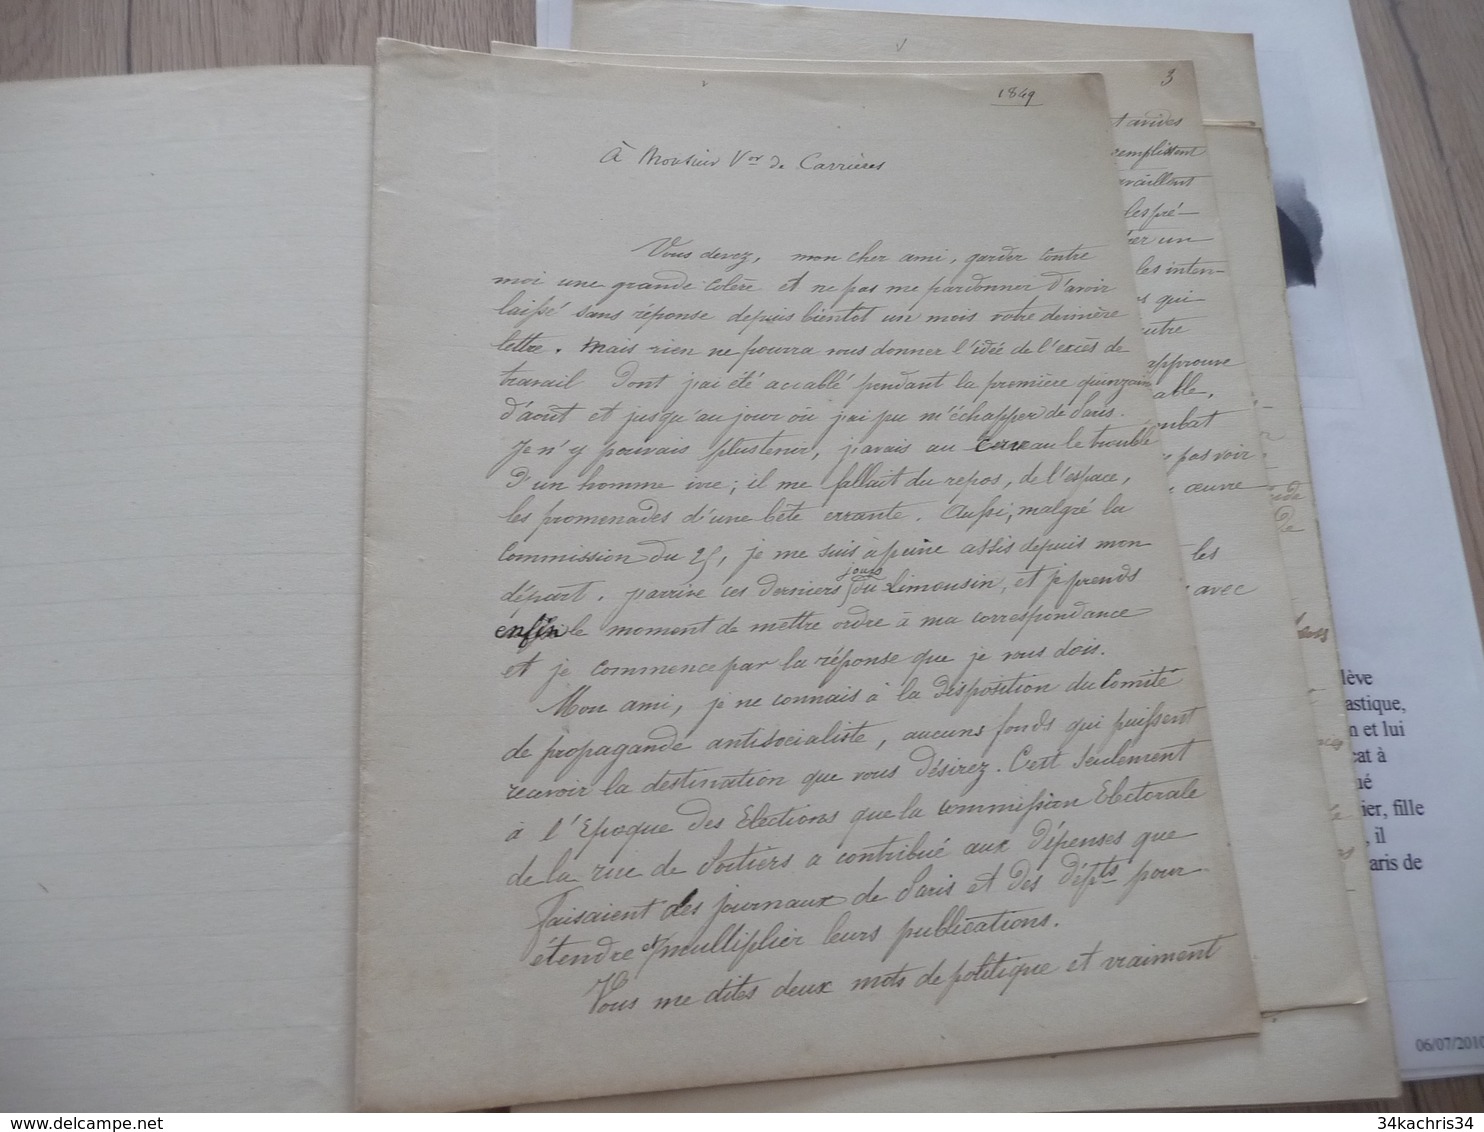 1849
À Monsieur Vor de Carrières
Vous devez, mon cher ami, garder contre
moi une grande colère et ne pas me pardonner d'avoir
laissé sans réponse depuis bientot un mois votre dernière
lettre. Mais rien ne pourra vous donner l'idée de l'excès de
travail dont j'ai été accablé pendant la première quinzaine
d'aout et jusqu'au jour où j'ai pu m'échapper de Paris.
Je n'y pouvais plus tenir, j'avais au cerveau le trouble
d'un homme ivre; il me fallait du repos, de l'espace,
les promenades d'une bête errante. Aussi, malgré la
Commission du 25, je me suis à peine assis depuis mon
départ. J'arrive ces derniers jours du Limousin, et je prends
enfin le moment de mettre ordre à ma correspondance
et je commence par la réponse que je vous dois.
Mon ami, je ne connais à la disposition du Comité
de propagande antisocialiste, aucuns fonds qui puissent
recevoir la destination que vous désirez. C'est seulement
à l'Epoque des Elections que la commission Electorale
de la rue de Poitiers a contribué aux dépenses que
faisaient des journaux de Paris et des dépts pour
étendre et multiplier leurs publications.
Vous me dites deux mots de politique et vraiment
3
t avides
remplissent
travaillent
les pré-
er un
les inter-
s qui
autre
approuve
able,
combat
pas voir
œuvre
les
avec
de
lève
astique,
n et lui
cat à
ué
ier, fille
, il
aris de
06/07/2010
34kachris34
34kachris34